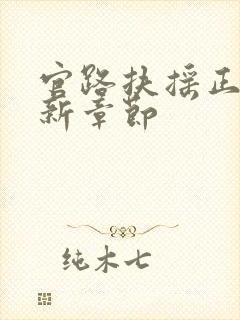 官路扶摇正
新章节
纯木七